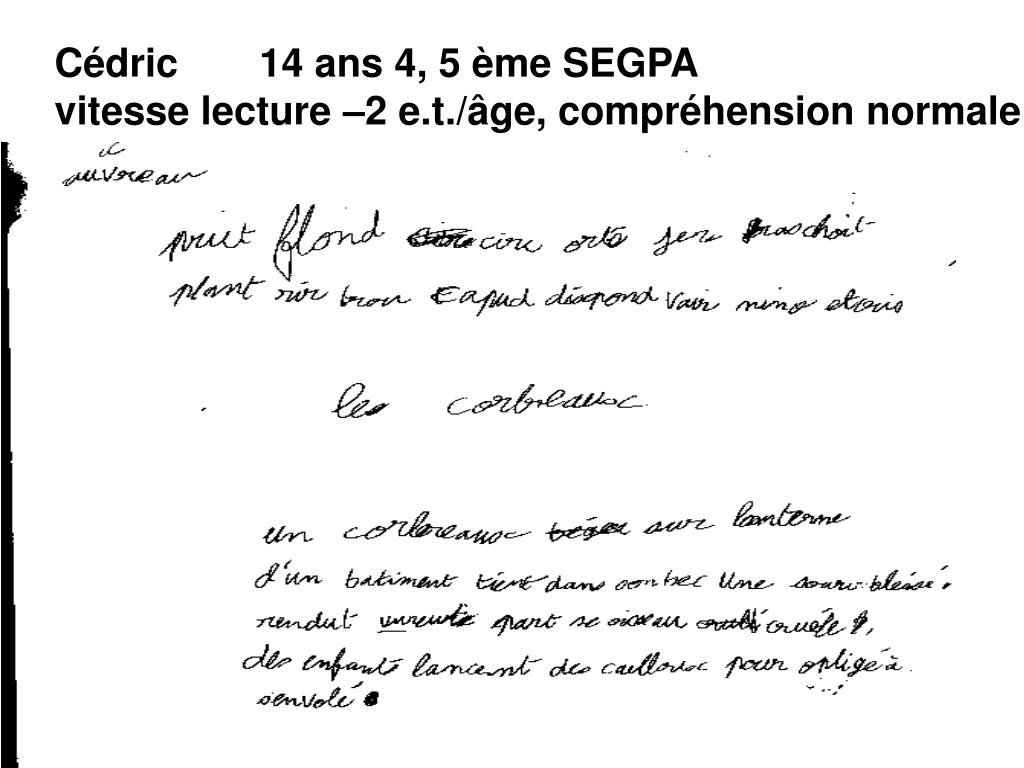 Cédric 14 ans 4, 5 ème SEGPA
vitesse lecture –2 e.t./âge, compréhension normale
pruit flond cire orts jer
plant rir brou capud diapond vair nino
les corbreauoc
un corbreauoc sur lanterne
d'un batiment tient dans son bec Une souri bléssé.
rendut part se oiseau cruéle
des enfants lancent des caillouoc pour opligé à
s'envolé.